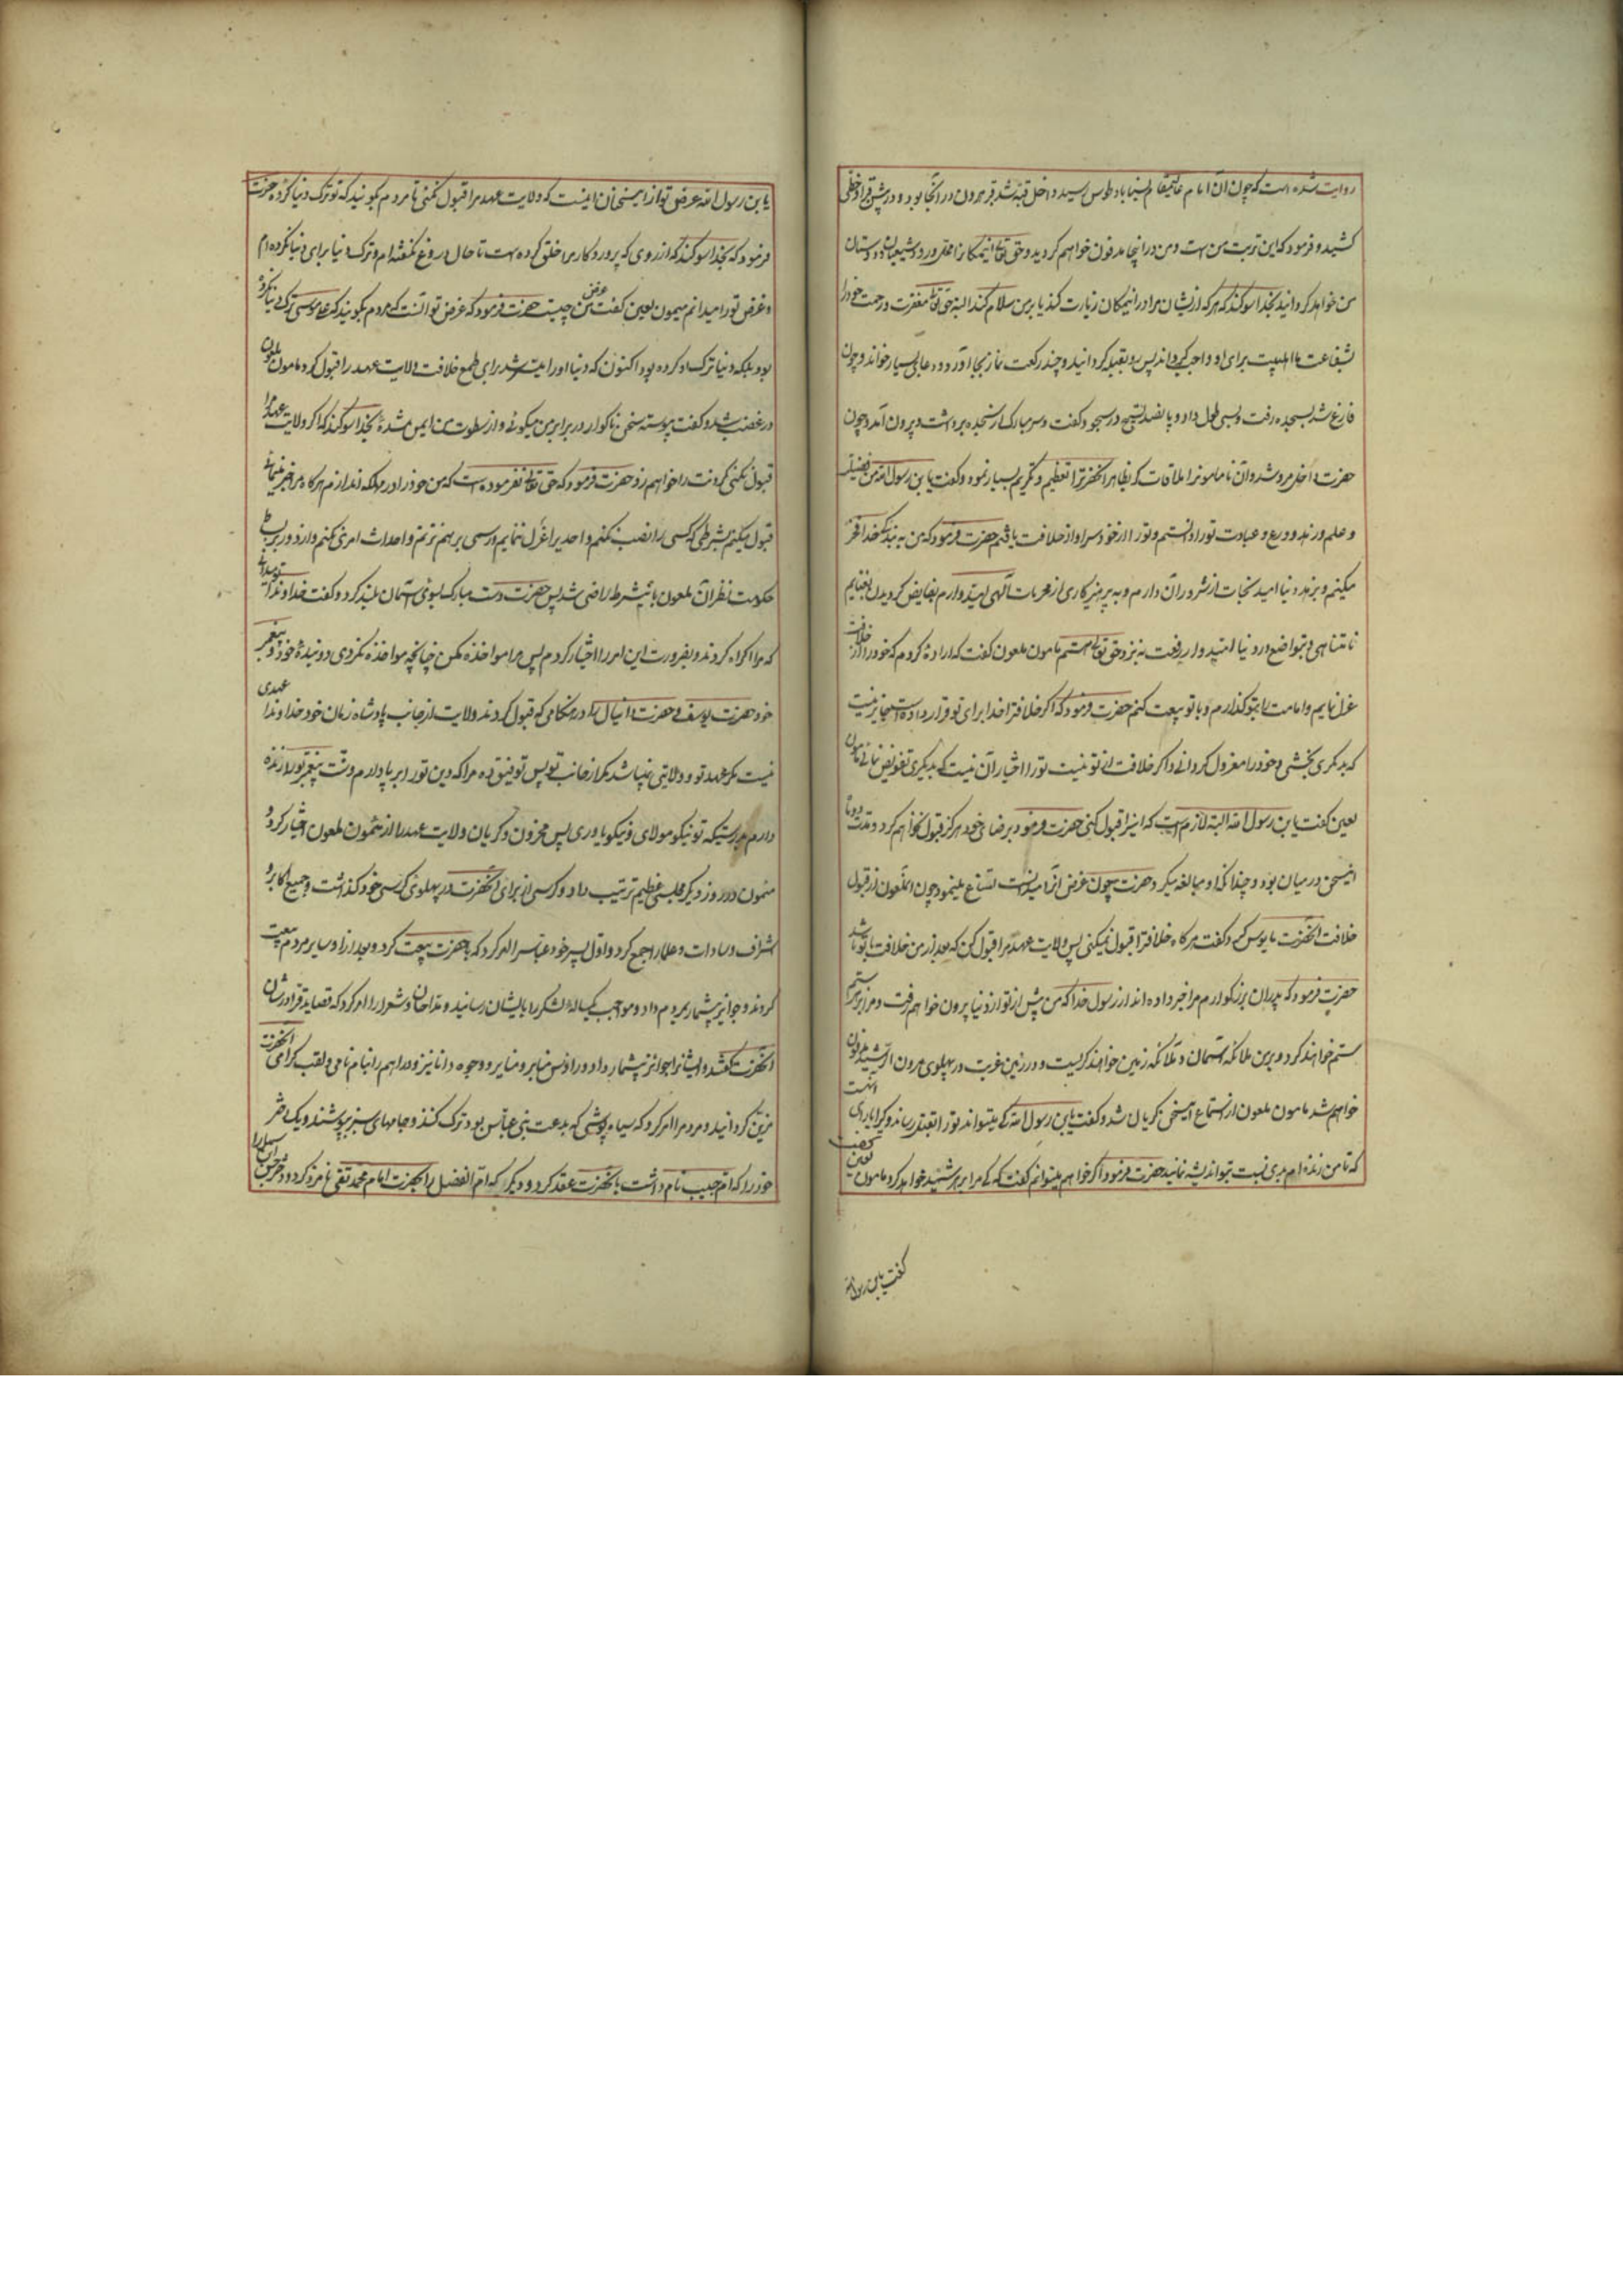 روایت شده است که چون آن امام عالیمقام بسناباد طوس رسید داخل قبه شد قبر هرون در آنجا بود و در پیش قبر او خطی
کشید و فرمود که این تربت من است و من در اینجا مدفون خواهم کردید و حق تعالی اینمکانرا محل ورود شیعیان و دوستان
من خواهد کردانید بخدا سوکند که هر که از ایشان مرا در اینمکان زیارت کند یا بر من سلام کند البته حق تعالی مغفرت و رحمت خود را
بشفاعت ما اهلبیت برای او واجب کرداند پس رو بقبله کردانید و چند رکعت نماز بجا آورد و دعای بسیار خواند و چون
فارغ شد بسجده رفت و بسی طول داد و پانصد تسبیح در سجود کفت و سر مبارک از سجده برداشت و بیرون آمد و چون
حضرت داخل مرو شد و آن نامامونرا ملاقات کرد بظاهر آنحضرترا تعظیم و تکریم بسیار نمود و کفت یا بن رسول الله من فضیلت
و علم و زهد و ورع و عبادت تورا دانستم و تورا از خود سزاوار خلافت یافتم حضرت فرمود که من به بندکی خدا فخر
میکنم و بزهد دنیا امید نجات از شرور آن دارم و به پرهیزکاری از محرمات الهی امیدوارم بفایض کردیدن بغنایم
نامتناهی و بتواضع در دنیا امیدوار رفعت به نزد حق تعالی هستم مامون ملعون کفت که اراده کردم که خود را از خلافت
عزل نمایم و امامت را بتو کذارم و با تو بیعت کنم حضرت فرمود که اکر خلافترا خدا برای تو قرار داده است جایز نیست
که بدیکری بخشی و خود را معزول کردانی و اکر خلافت از تو نیست تورا اختیار آن نیست که بدیکری تفویض نمائی مامون
لعین کفت یا بن رسول الله البته لازم است که اینرا قبول کنی حضرت فرمود برضای خود هرکز قبول نخواهم کرد و مدت دو ماه
اینسخن در میان بود و چندانکه او مبالغه میکرد حضرت چون غرض آنرا میدانست امتناع مینمود چون آنملعون از قبول
خلافت آنحضرت مایوس کردید کفت هرکاه خلافترا قبول نمیکنی پس ولایت عهد مرا قبول کن که بعد از من خلافت با تو باشد
حضرت فرمود که پدران بزرکوارم مرا خبر داده اند از رسول خدا که من پیش از تو از دنیا بیرون خواهم رفت و مرا بزهر ستم
ستم خواهند کرد و بر من ملائکه آسمان و ملائکه زمین خواهند کریست و در زمین غربت در پهلوی هرون الرشید مدفون
خواهم شد مامون ملعون از استماع اینسخن کریان شد و کفت یا بن رسول الله که میتواند تورا بقتل رساند و کرا یارای آنست
که تا من زنده ام بدی نسبت بتو اندیشه نماید حضرت فرمود اکر خواهم میتوانم کفت که که مرا بزهر شهید خواهد کرد مامون لعین کفت
کفت یا بن رسول الله
یا بن رسول الله غرض تو از اینسخنان اینست که ولایت عهد مرا قبول نکنی تا مردم بکویند که تو ترک دنیا کرده حضرت
فرمود که بخدا سوکند که از روزی که پروردکار مرا خلق کرده است تا حال دروغ نکفته ام و ترک دنیا برای دنیا نکرده ام
و غرض تورا میدانم میمون لعین کفت غرض من چیست حضرت فرمود که غرض تو آنست که مردم بکویند که علی بن موسی ترک دنیا نکرده
بود بلکه دنیا ترک او کرده بود اکنون که دنیا او را میسر شد برای طمع خلافت ولایت عهد را قبول کرد مامون ملعون
در غضب شد و کفت پیوسته سخن ناکوار در برابر من میکوئی و از سطوت من ایمن شدۀ بخدا سوکند که اکر ولایت عهد مرا
قبول نکنی کردنت را خواهم زد حضرت فرمود که حق تعالی نفرموده است که من خود را در مهلکه اندازم هرکاه مرا جبر مینمائی
قبول میکنم بشرطی که کسی را نصب نکنم و احدیرا عزل ننمایم و رسمی بر هم نزنم و احداث امری نکنم و از دور بر بساط
حکومت نظر کنم آن ملعون باینشرط راضی شد پس حضرت دست مبارک بسوی آسمان بلند کرد و کفت خداوندا تو میدانی
که مرا اکراه کردند و بضرورت این امر را اختیار کردم پس مرا مواخذه مکن چنانچه مواخذه نکردی دو بندۀ خود و پیغمبر
خود حضرت یوسف و حضرت دانیال را در هنکامی که قبول کردند ولایت از جانب پادشاه زمان خود خداوندا عهدی
نیست مکر عهد تو و ولایتی نمیباشد مکر از جانب تو پس توفیق ده مرا که دین تورا بر پا دارم و سنت پیغمبر تورا زنده
دارم بدرستیکه تو نیکو مولای و نیکو یاوری پس محزون و کریان ولایت عهد را از میمون ملعون اختیار کرد و
میمون در روز دیکر مجلسی عظیم ترتیب داد و کرسی از برای آنحضرت در پهلوی کرسی خود کذاشت و جمیع اکابر و
اشراف و سادات و علما را جمع کرد و اول پسر خود عباسرا امر کرد که با حضرت بیعت کرد و بعد از او سایر مردم بیعت
کردند و جوایز بیشمار بمردم داد و مواجب یکساله لشکر را بایشان رسانید و مداحان و شعرا را امر کرد که قصاید غرا در شان
آنحضرت کفتند و ایشانرا جوایز بیشمار داد و رؤس منابر و منایر و وجوه دنانیر و دراهم را بنام نامی و لقب کرامی آنحضرت
مزین کردانید و مردم را امر کرد که سیاه پوشی که بدعت بنی عباس بود ترک کنند و جامهای سبز بپوشند و یک دختر
خود را که ام حبیب نام داشت بآنحضرت عقد کرد و دیکر که ام الفضل را بحضرت امام محمد تقی نامزد کرد و دختر حسن بن سهل را